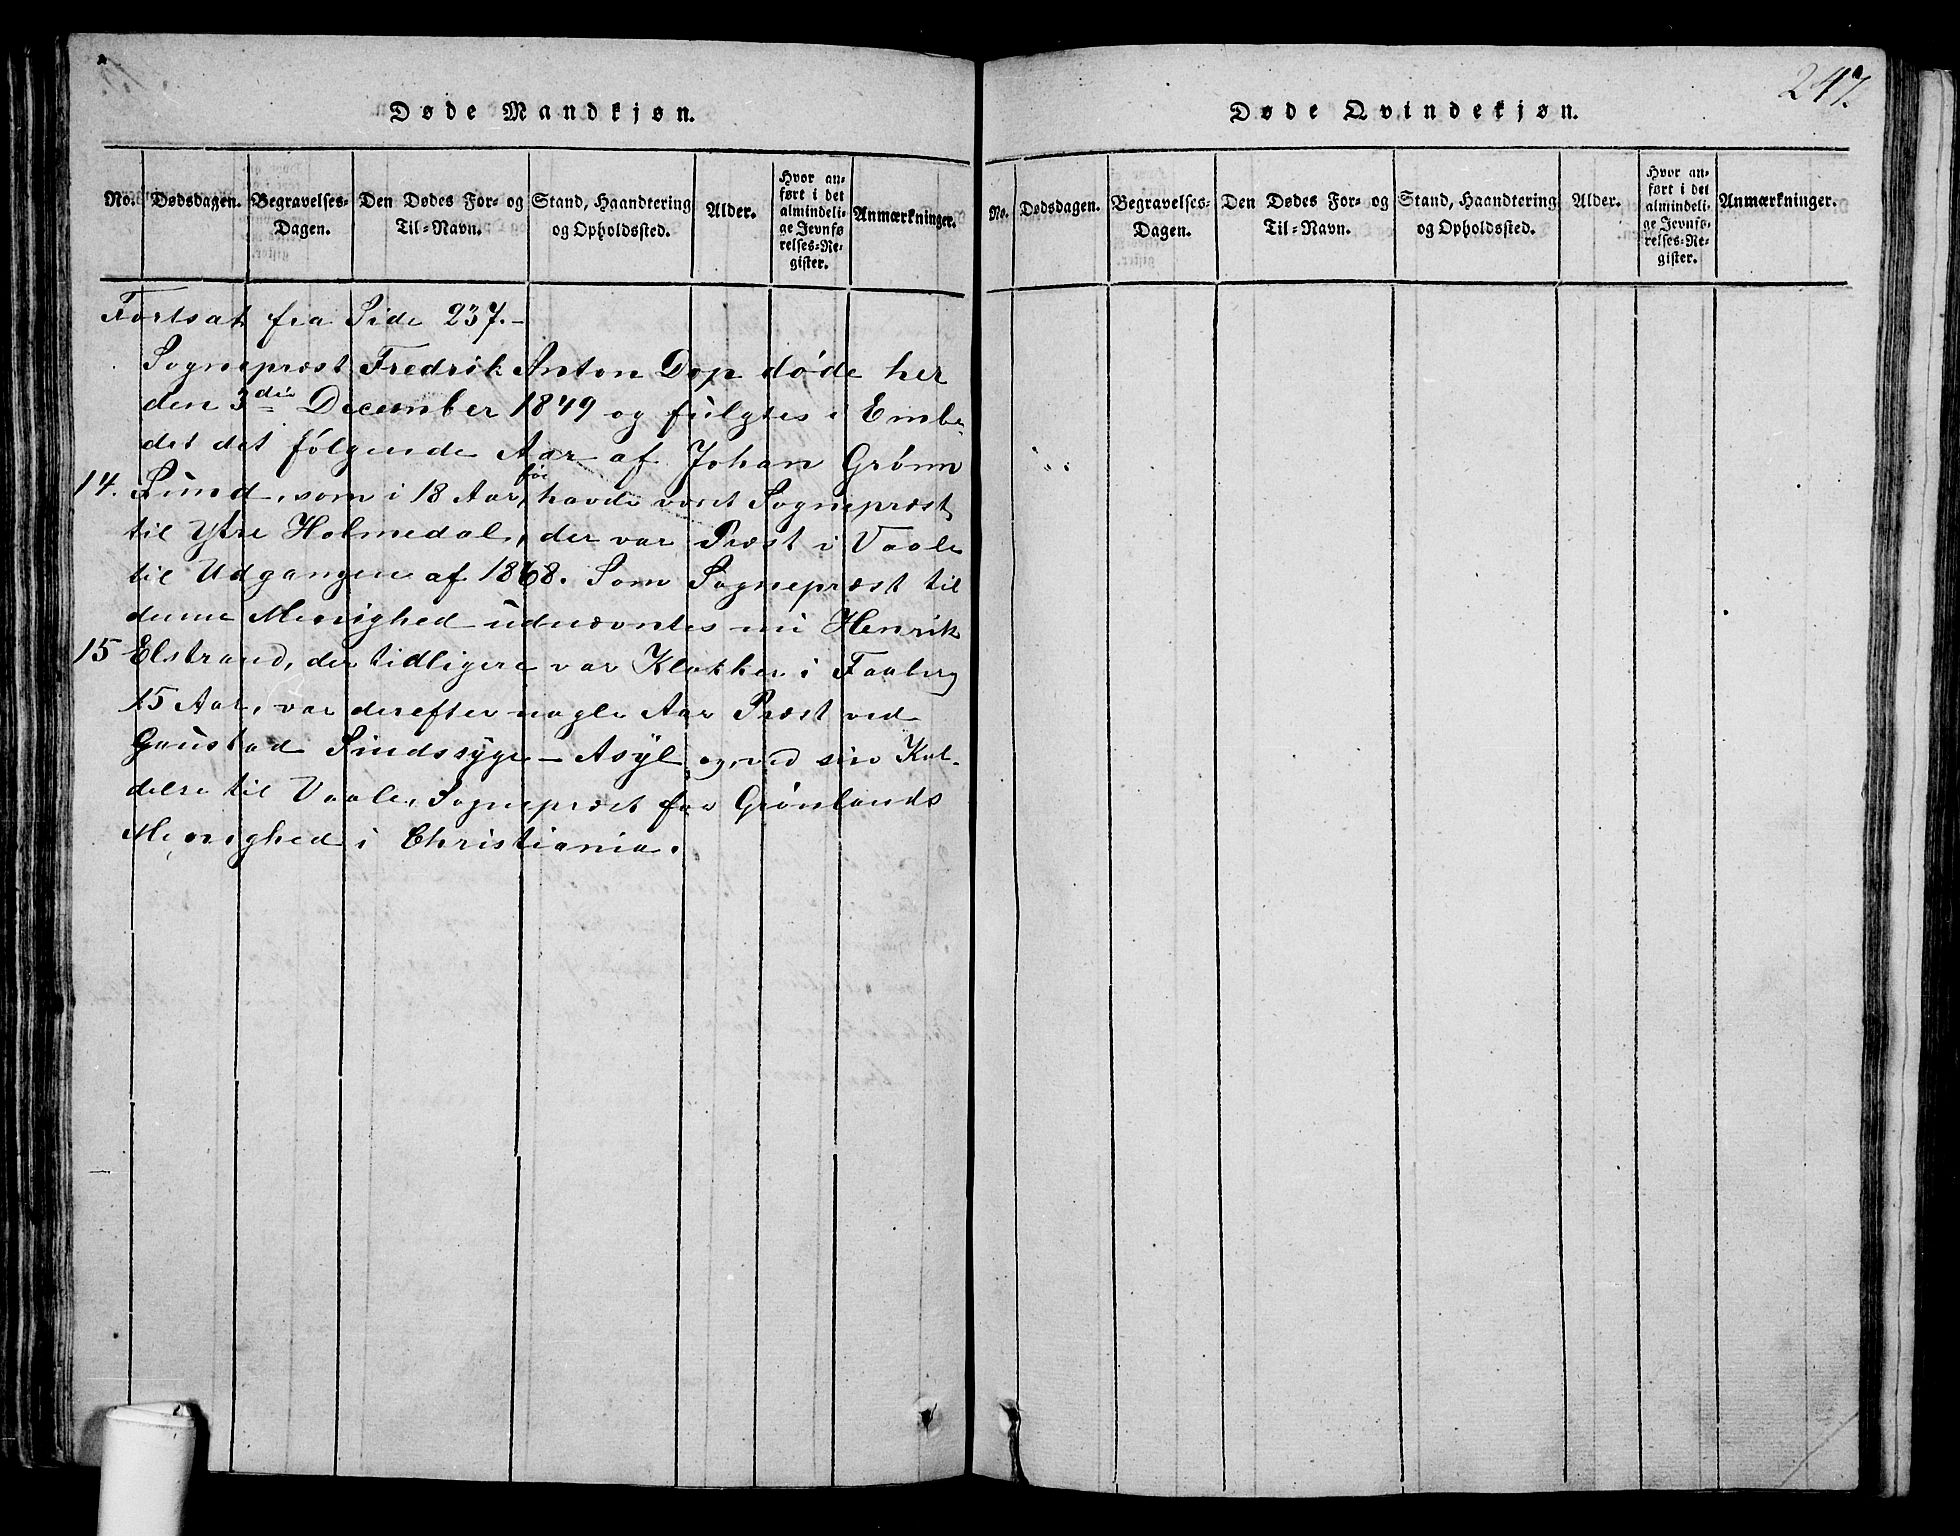 247.
Døde Mandkjøn.
No. Dødsdagen. Begravelses-Dagen. Den Dødes For- og Til-Navn. Stand, Haandtering og Opholdssted. Alder. Hvor anført i det almindelige Jevnførelses-Register. Anmærkninger.
Fortsat fra Side 237.-
Sognepræst Fredrik Anton Dop døde her
den 3die December 1849 og fulgtes i Embe-
det det følgende Aar af Johan Grønn
14. Lund, som i 18 Aar før havde været Sognepræst
til Ytre Holmedal, der var Præst i Vaale
til Udgangen af 1868. Som Sognepræst til
denne Menighed udnævntes nu Henrik
15 Elstrand, der tidligere var Klokker i Faaberg
15 Aar, var derefter nogle Aar Præst ved
Gaustad Sindssyge-Asyl og ved sin Kal-
delse til Vaale, Sognepræst for Grønlands
Menighed i Christiania.
Døde Qvindekjøn.
No. Dødsdagen. Begravelses-Dagen. Den Dødes For- og Til-Navn. Stand, Haandtering og Opholdssted. Alder. Hvor anført i det almindelige Jevnførelses-Register. Anmærkninger.